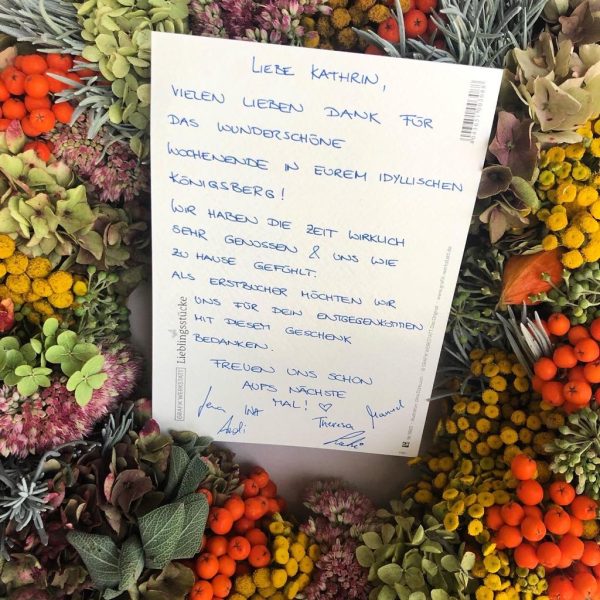 LIEBE KATHRIN,
VIELEN LIEBEN DANK FÜR
DAS WUNDERSCHÖNE
WOCHENENDE IN EUREM IDYLLISCHEN
KÖNIGSBERG!
WIR HABEN DIE ZEIT WIRKLICH
SEHR GENOSSEN & UNS WIE
ZU HAUSE GEFÜHLT.
ALS ERSTBUCHER MÖCHTEN WIR
UNS FÜR DEIN ENTGEGENKOMMEN
MIT DIESEM GESCHENK
BEDANKEN.
FREUEN UNS SCHON
AUFS NÄCHSTE
MAL! ♡
Jena INA Theresa Manuel
Andi
GRAFIK WERKSTATT
Lieblingsstücke